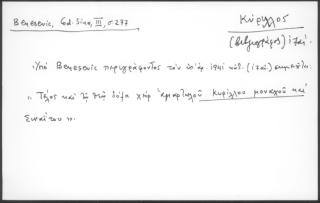 Beneševic, Cod. Sina, III, σ. 277
Κύριλλος
(βιβλιογράφος) ιζ´ αἰ.
Ὑπὸ Beneševic περιγράφοντος τὸν ὑπ' ἀρ. 1941 κώδ. (ιζ´ αἰ.) σημειοῦται:
"Τέλος καὶ τῷ Θεῷ δόξα χεὶρ ἁμαρτωλοῦ Κυρίλλου μοναχοῦ καὶ
Σιναΐτου".